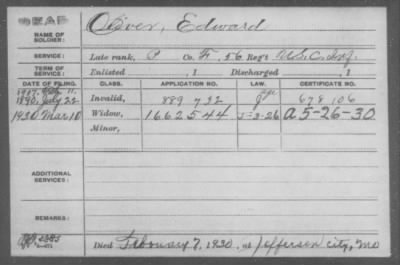 DEAF
NAME OF SOLDIER: Oliver, Edward
SERVICE: Late rank, P Co. F, 56 Reg't U.S.C. Inf.
TERM OF SERVICE: Enlisted , 1 Discharged , 1
DATE OF FILING. CLASS. APPLICATION NO. LAW. CERTIFICATE NO.
1917. 11.
1890, July 22 Invalid, 889 722 Age 678 106
1930 Mar 10 Widow, 1662544 5-3-26 A 5-26-30
Minor,
ADDITIONAL SERVICES:
REMARKS:
Died February 7, 1930, at Jefferson City, Mo